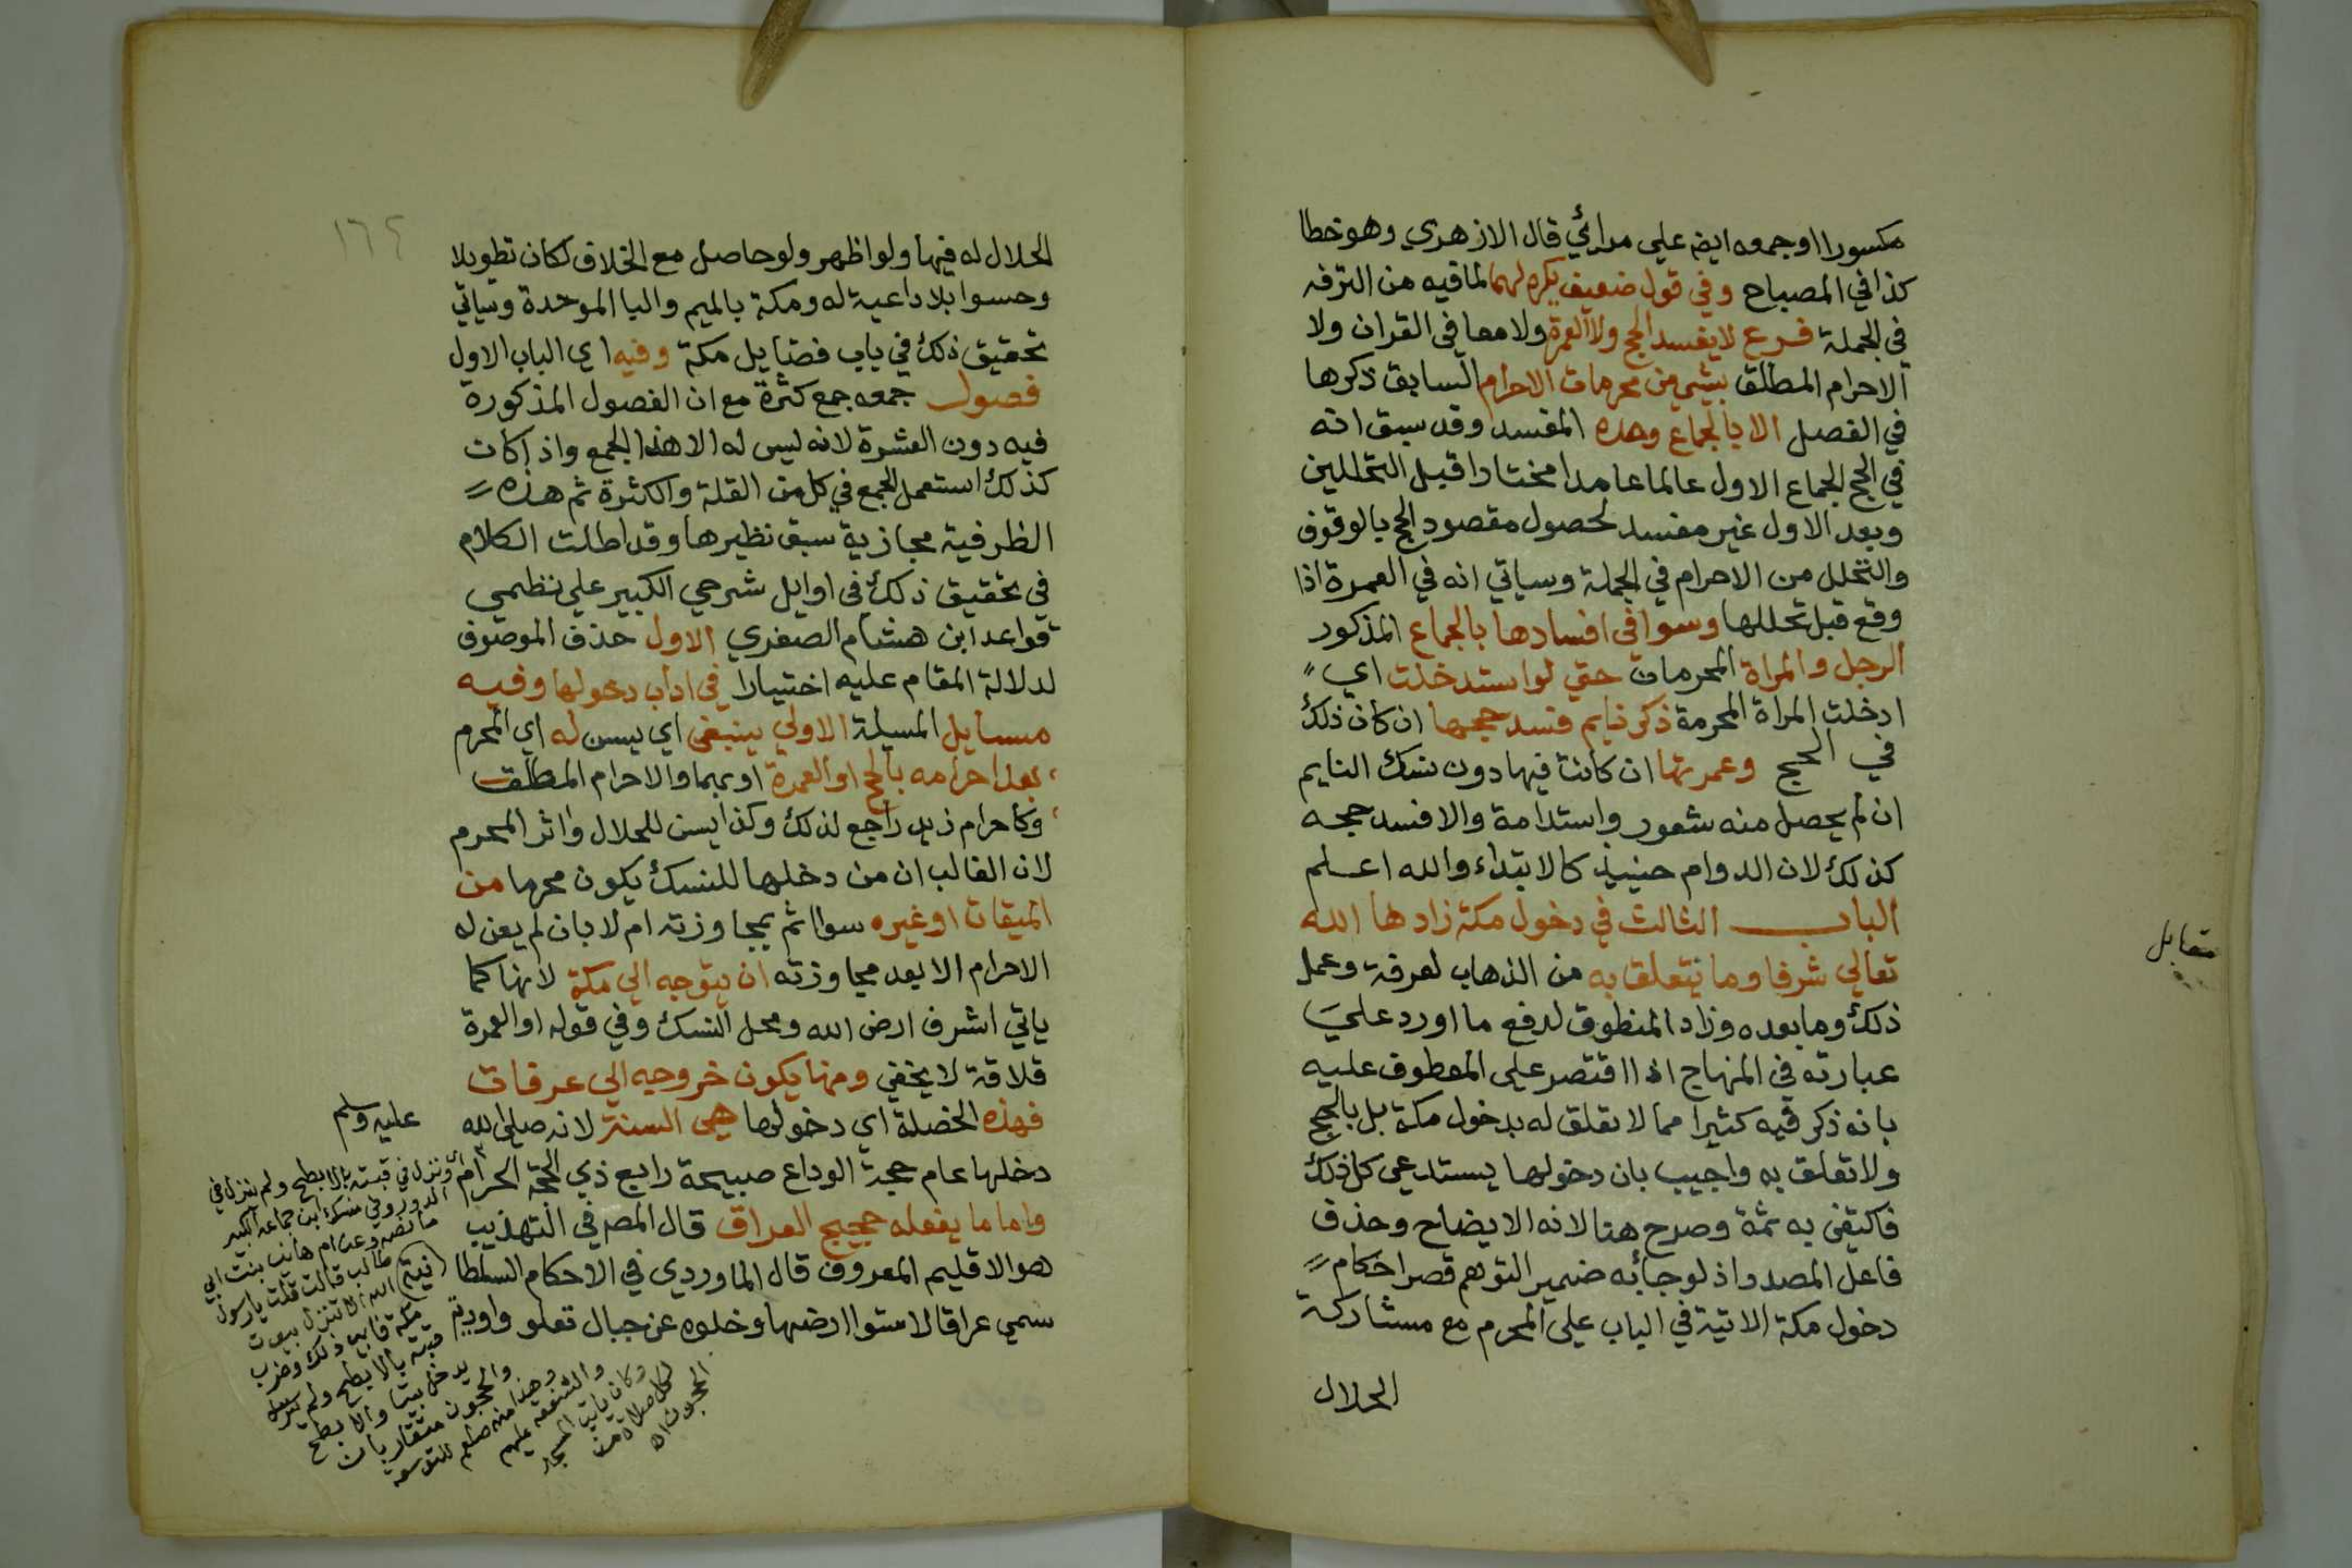 مكسورا اوجمعه ايضر علي مدائي قال الازهري وهو خطا
كذا في المصباح وفي قول ضعيف يكره لهما لما فيه من الترفه
في الجملة فرع لا يفسد الحج ولا العمرة ولا معا في القران ولا
الاحرام المطلق بشي من محرمات الاحرام السابق ذكرها
في الفصل الا بالجماع وحده المفسد وقد سبق انه
في الحج الجماع الاول عالما عامدا مختارا قبل التحللين
وبعد الاول غير مفسد لحصول مقصود الحج بالوقوف
والتحلل من الاحرام في الجملة وسياتي انه في العمرة اذا
وقع قبل تحللها وسوا في افسادها بالجماع المذكور
الرجل والمراة المحرمات حتي لو استدخلت اي
ادخلت المراة المحرمة ذكر نايم فسد حجها ان كان ذلك
في الحج وعمرتها ان كانت فيها دون نسك النايم
ان لم يحصل منه شعور واستدامة والا فسد حجه
كذلك لان الدوام حينيذ كالابتداء والله اعلم
الباب الثالث في دخول مكة زادها الله
تعالي شرفا وما يتعلق به من الذهاب لعرفة وعمل
ذلك وما بعده وزاد المنطوق لدفع ما اورد علي
عبارته في المنهاج اذ اقتصر علي المعطوف عليه
بانه ذكر فيه كثيرا مما لا تعلق له بدخول مكة بل بالحج
ولا تعلق به واجيب بان دخولها يستدعي كل ذلك
فاكتفي به ثمة وصرح هنا لانه الايضاح وحذف
فاعل المصدر اذ لو جا به ضمير التوهم قصر احكام
دخول مكة الاتية في الباب علي المحرم مع مشاركة
الحلال
مقابل
١٦٤
الحلال له فيها ولو اظهر ولو حاصل مع الخلاف لكان تطويلا
وحسوا بلا داعية له ومكة بالميم والبا الموحدة وسياتي
تحقيق ذلك في باب فضايل مكة وفيه اي الباب الاول
فصول جمعه جمع كثرة مع ان الفصول المذكورة
فيه دون العشرة لانه ليس له الا هذا الجمع واذا كانت
كذلك استعمل الجمع في كل من القلة والكثرة ثم هذه
الظرفية مجازية سبق نظيرها وقد اطلت الكلام
في تحقيق ذلك في اوايل شرحي الكبير علي نظمي
قواعد ابن هشام الصغري الاول حذف الموصوف
لدلالة المقام عليه اختيارا في اداب دخولها وفيه
مسايل المسيلة الاولي ينبغي اي يسن له اي المحرم
بعد احرامه بالحج او العمرة او بهما والاحرام المطلق
وكاحرام زيد راجع لذلك وكذا يسن للحلال واثر المحرم
لان الغالب ان من دخلها للنسك يكون محرما من
الميقات او غيره سوا اثم بمجاوزته ام لا بان لم يعن له
الاحرام الا بعد مجاوزته ان يتوجه الي مكة لانها كما
ياتي اشرف ارض الله ومحل النسك وفي قوله او العمرة
قلاقة لا يخفي ومنها يكون خروجه الي عرفات
فهذه الخصلة اي دخولها هي السنة لانه صلى الله
عليه وسلم
دخلها عام حجة الوداع صبيحة رابع ذي الحجة الحرام
واما ما يفعله حجيج العراق قال المصر في التهذيب
هو الاقليم المعروف قال الماوردي في الاحكام السلطا
سمي عراقا لاستوا ارضها وخلوه عن جبال تعلو واودية
ونزل في قبته بالابطح ولم ينزل في
الدور وفي منسك ابن جماعه الكبير
ما نصه وعن ام هاني بنت ابي
طالب قالت قلت يا رسول
الله الا تنزل بيوت
مكة فابي ذلك وضرب
قبته بالابطح ولم
يدخل بيتا والابطح
والحجون متقاربان
وهذا منه صلعم للتوسعة
والشفقة عليهم
وكان ياتي المسجد
لكل صلاة من
الحجون اه